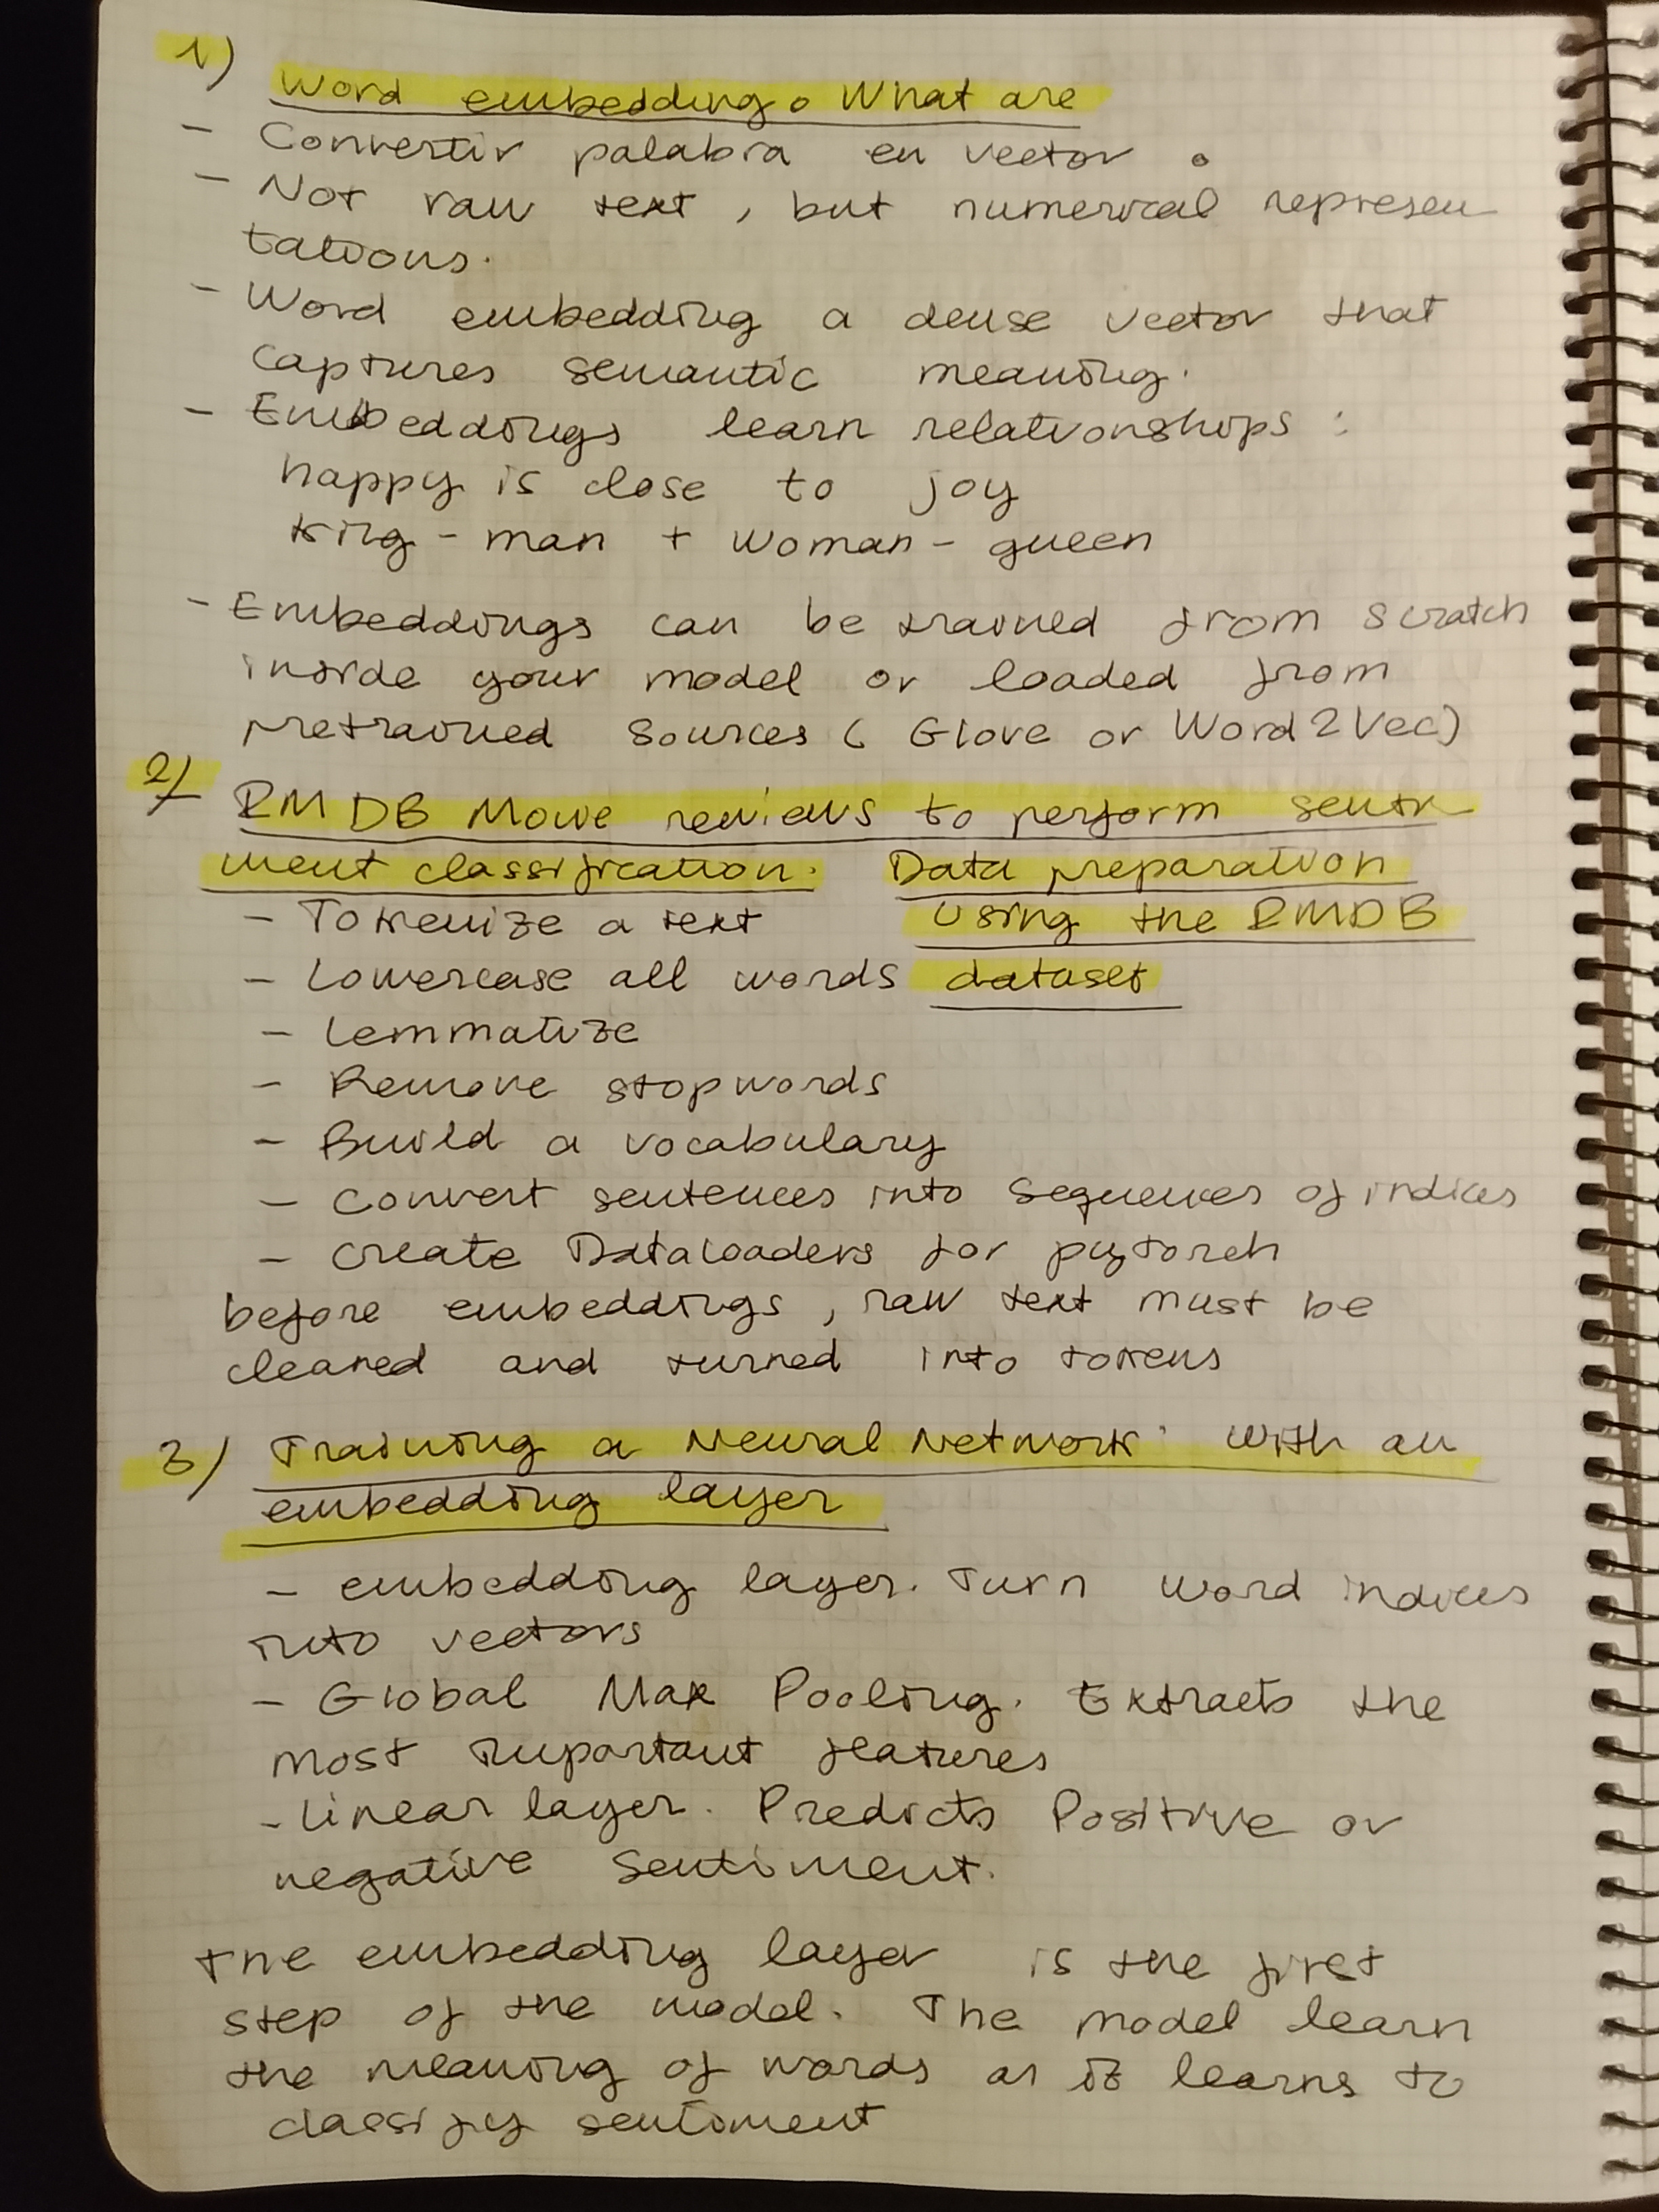 1)
Word embedding. What are
- Convertir palabra en vector.
- Not raw text, but numerical represen
tations.
- Word embedding a dense vector that
captures semantic meaning.
- Embeddings learn relationships:
happy is close to joy
King - man + woman - queen
- Embeddings can be trained from scratch
inside your model or loaded from
pretrained sources (Glove or Word2Vec)
2)
IMDB Movie reviews to perform senti
ment classification. Data preparation
- Tokenize a text using the IMDB
- Lowercase all words dataset
- Lemmatize
- Remove stopwords
- Build a vocabulary
- Convert sentences into sequences of indices
- Create Dataloaders for pytorch
before embeddings, raw text must be
cleaned and turned into tokens
3) Training a Neural Network with an
embedding layer
- embedding layer. Turn word indices
into vectors
- Global Max Pooling. Extracts the
most important features
- Linear layer. Predicts Positive or
negative Sentiment.
The embedding layer is the first
step of the model. The model learn
the meaning of words as it learns to
classify sentiment